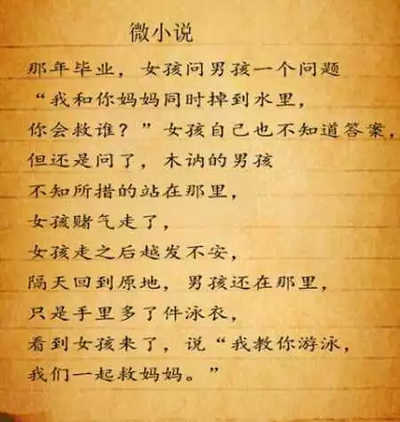 微小说
那年毕业，女孩问男孩一个问题
“我和你妈妈同时掉到水里，
你会救谁？”女孩自己也不知道答案，
但还是问了，木讷的男孩
不知所措的站在那里，
女孩赌气走了，
女孩走之后越发不安，
隔天回到原地，男孩还在那里，
只是手里多了件泳衣，
看到女孩来了，说“我教你游泳，
我们一起救妈妈。”